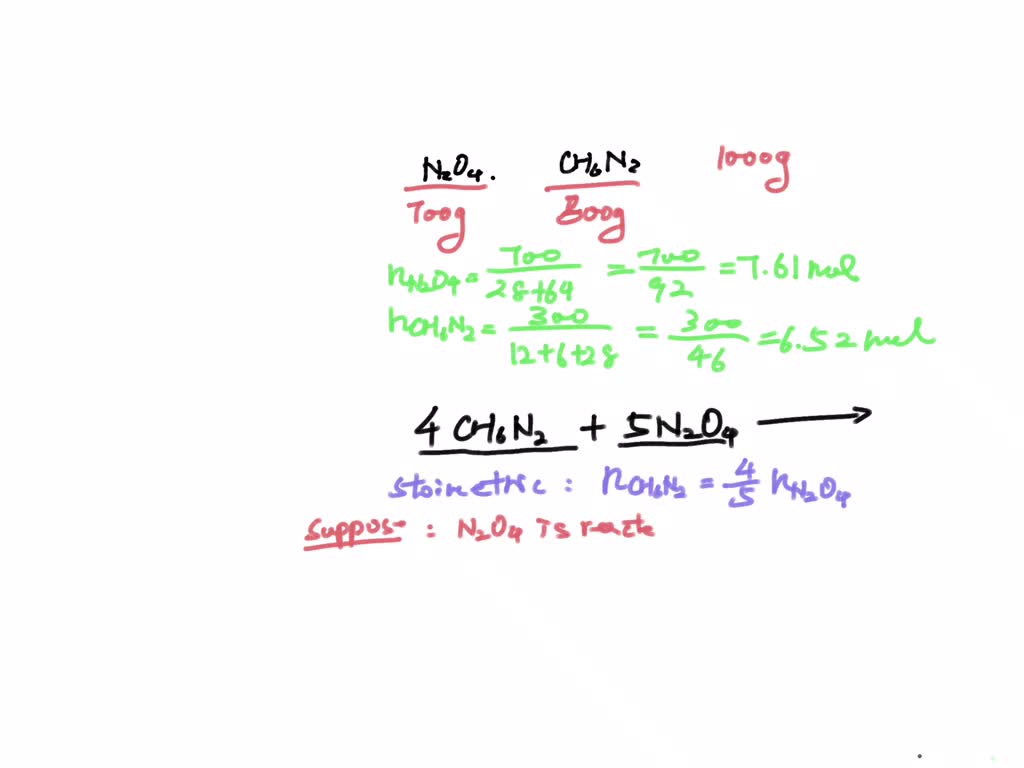 N₂O₄. CH₆N₂ 1000g
700g 300g
nN₂O₄ = 700/28+64 = 700/92 = 7.61 mol
nCH₆N₂ = 300/12+6+28 = 300/46 = 6.52 mol
4 CH₆N₂ + 5N₂O₄ ⟶
stoimetric : nCH₆N₂ = 4/5 nN₂O₄
suppose : N₂O₄ is